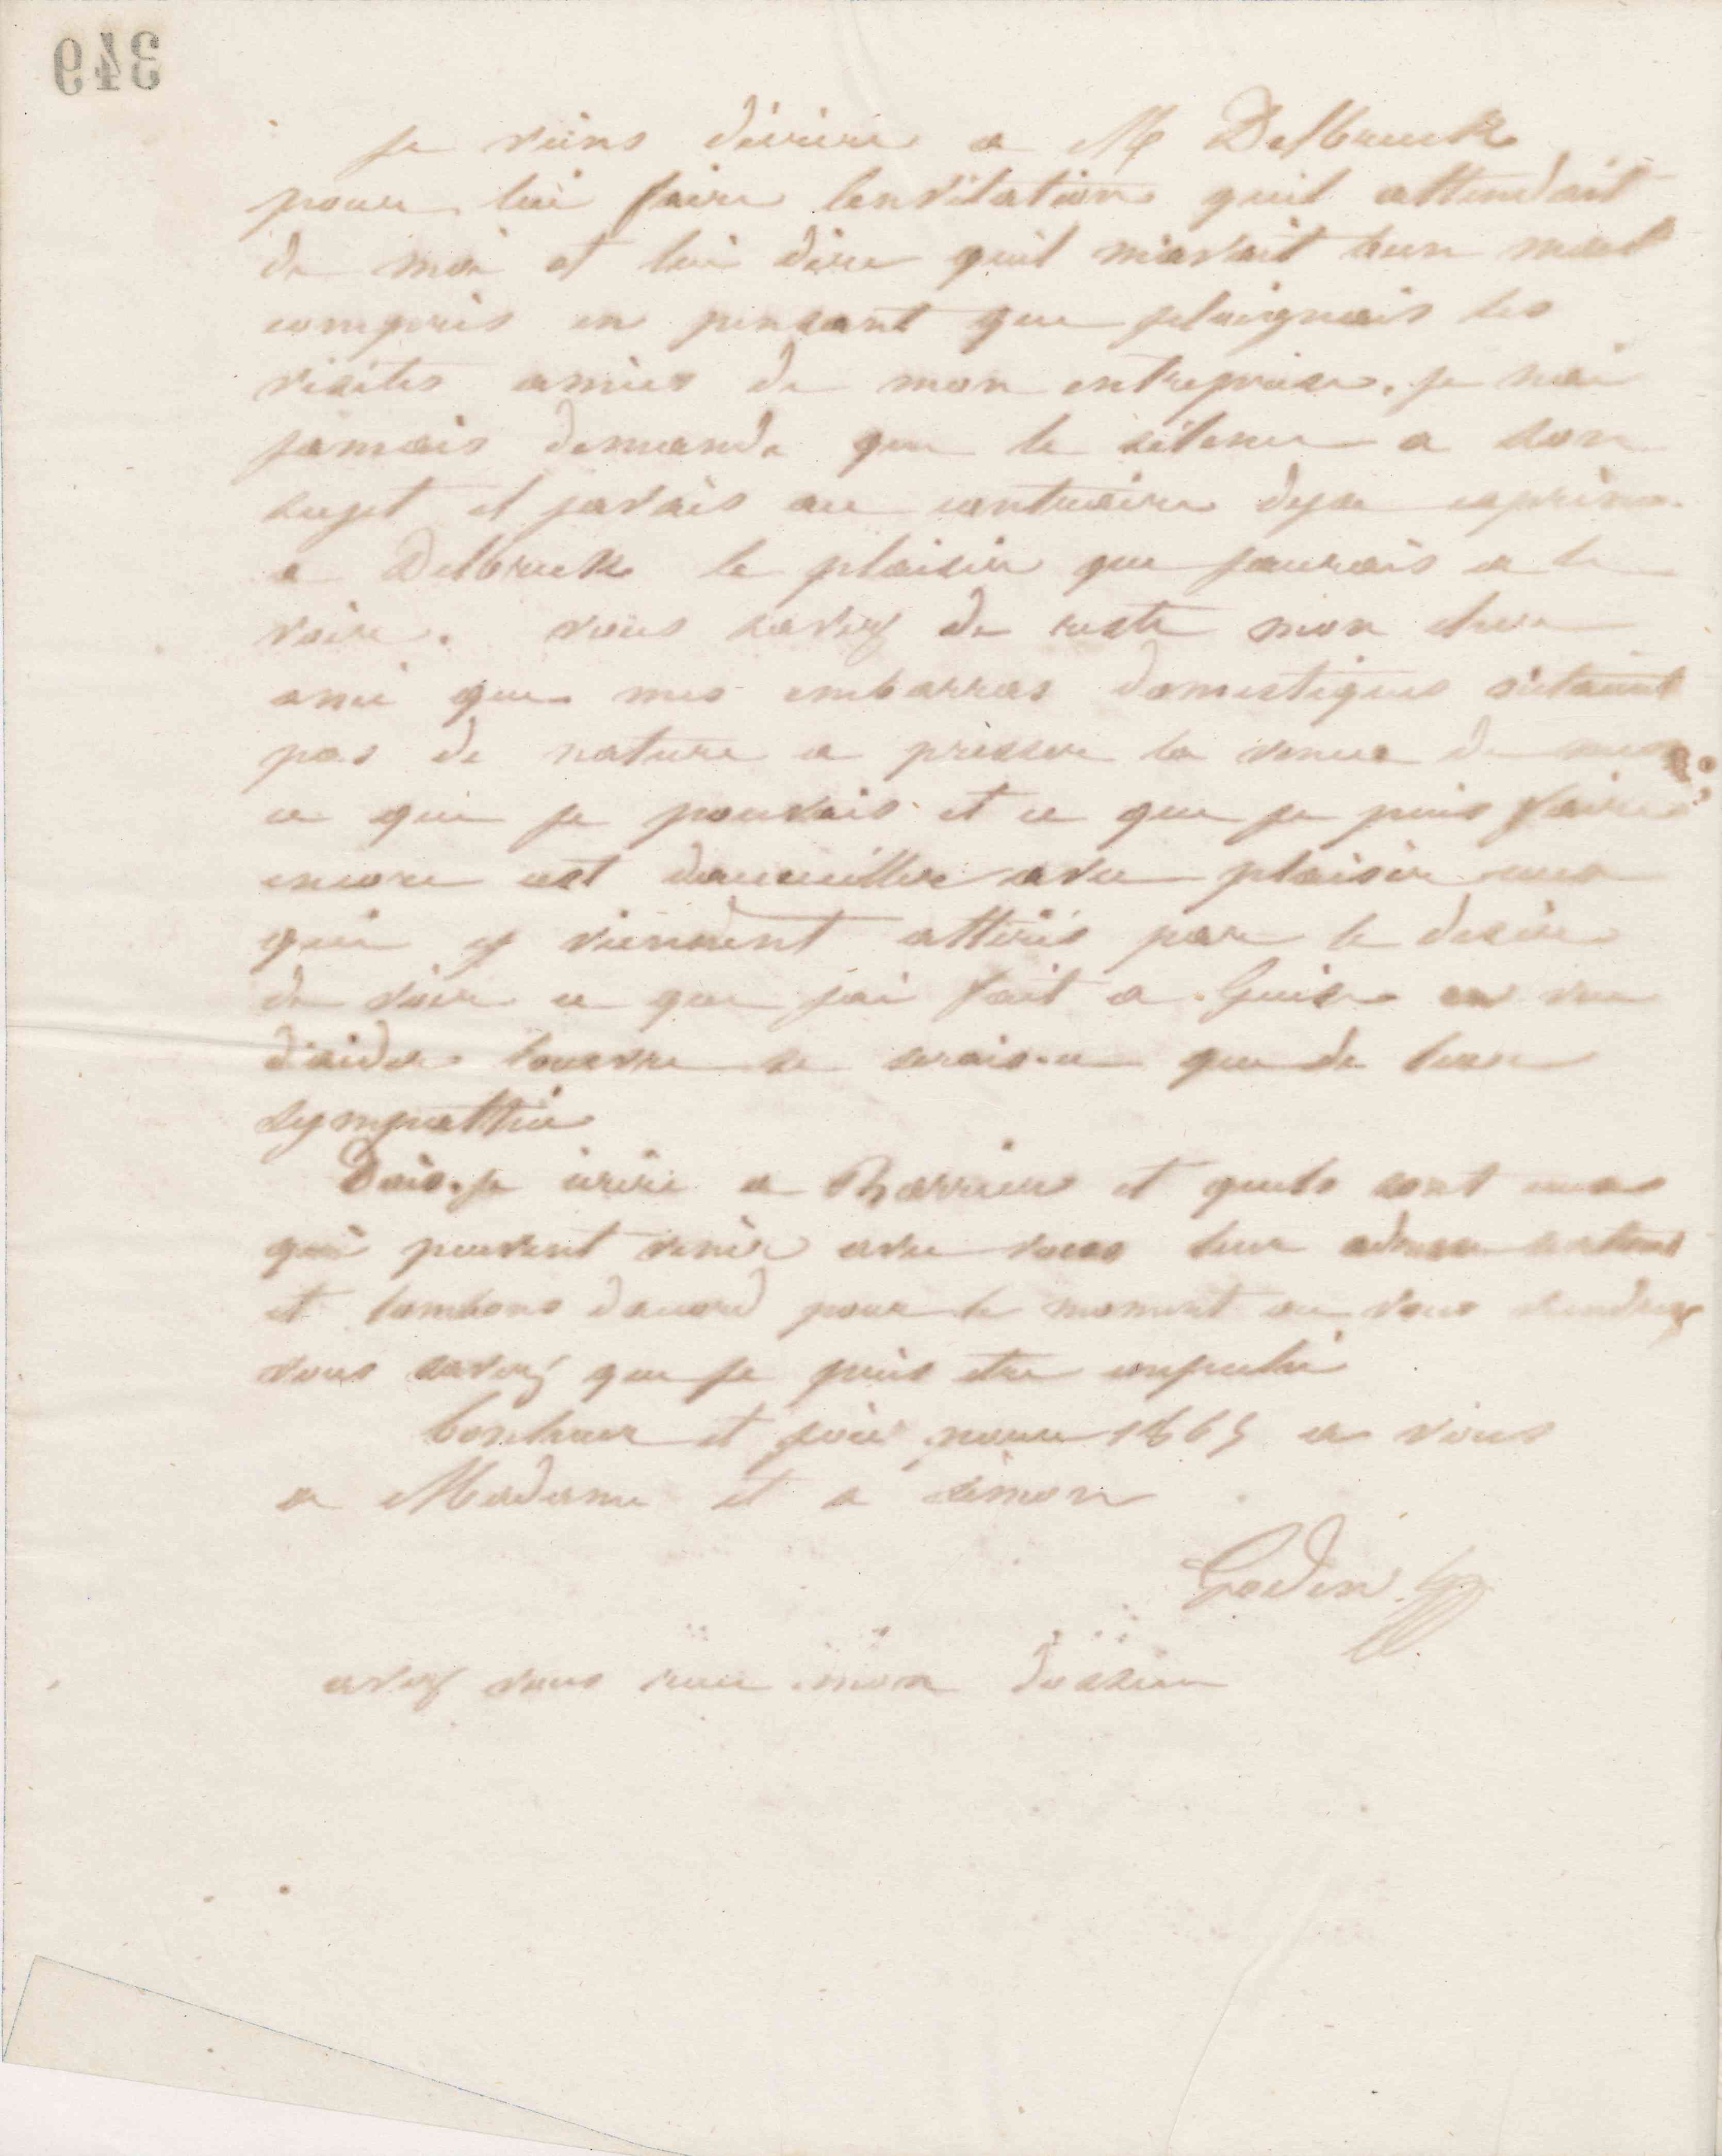 349
je viens décrire a M Delbruck
pour lui faire lenvitation quil attendait
de moi et lui dire quil m'avait bien mal
compris en pensant que jeloignais les
visites amies de mon entreprise. je nai
jamais demande que le silence a son
sujet et javais au contraire deja exprime
a Delbruck le plaisir que jaurais a le
voire. vous savez de reste mon cher
ami que mes embarras domestiques netaient
pas de nature a presser la venue de
ce que je pouvais et ce que je puis faire
encore est daccueillir avec plaisir ceux
qui y viennent attirés par le desir
de voir ce que jai fait a Guise en vue
d'aider loeuvre ne serais-ce que de leur
sympathie
Dois-je ecrire a Barrier et quels sont ceux
qui peuvent venir avec vous leur adresse
et tombons daccord pour le moment ou vous viendrez
vous savez que je puis etre empeché
bonheur et joie pour 1865 a vous
a Madame et a simon
Godin
avez vous reçu mon dossier